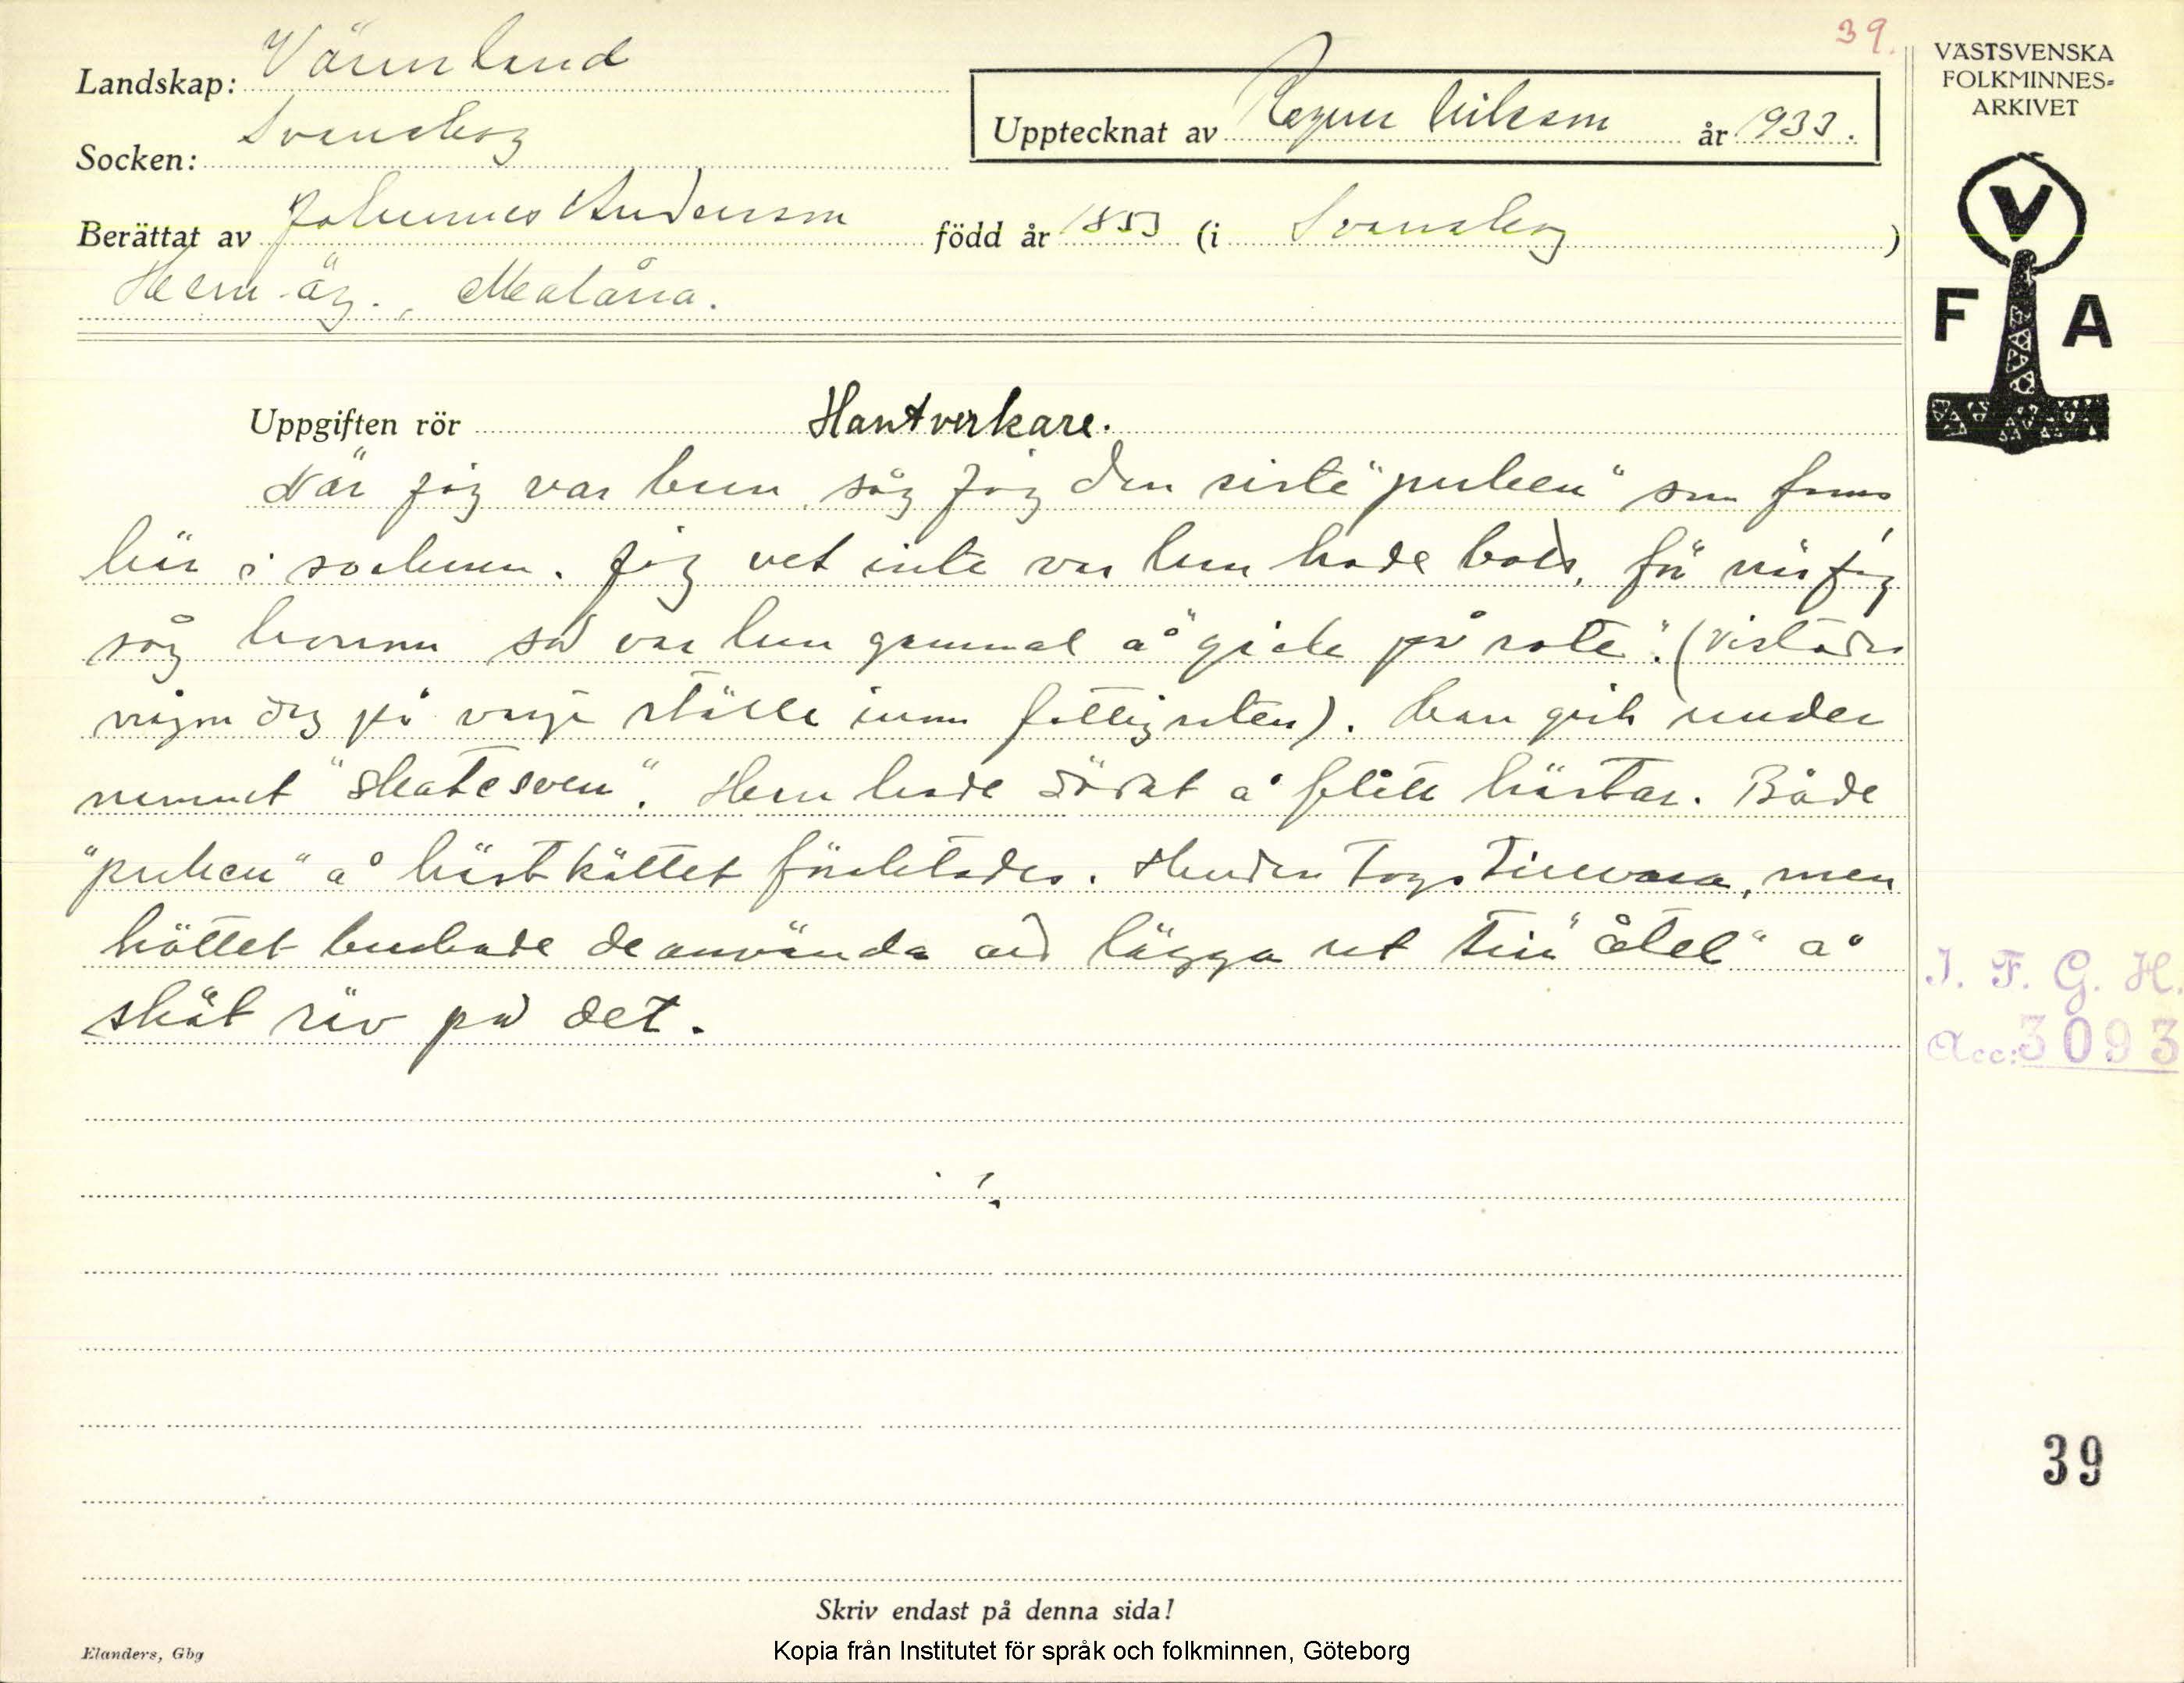 39.
Landskap: Värmland
Socken: Svanskog
Upptecknat av Ragnar Nilsson år 1933.
Berättat av Johannes Andersson född år 1853 (i Svanskog)
Hem. äg.,
VÄSTSVENSKA
FOLKMINNES-
ARKIVET
V
F A
Uppgiften rör Hantverkare.
När jag var barn, såg jag den siste "puken" som fanns
här i socknen. Jag vet inte var han hade bott, för när jag
såg honom så var han gammal å "gick på rote". (Vistades
någon dag på varje ställe inom fattigroten). Han gick under
namnet "Skatesven". Han hade dödat å flått hästar. Både
"puken" å hästköttet föraktades. Huden togs tillvara, men
köttet brukade de använda att lägga ut till "åtel" å
sköt räv på det.
I. F. G. H.
Acc: 3093
39
Skriv endast på denna sida!
Elanders, Gbg
Kopia från Institutet för språk och folkminnen, Göteborg